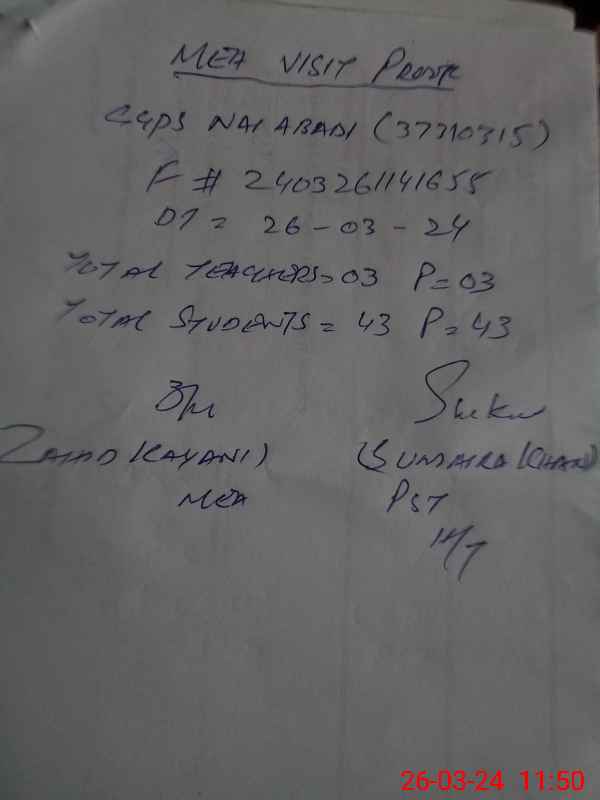 MEA VISIT PROOF
GGPS NAI ABADI (37310315)
F # 2403261141655
DT = 26-03-24
TOTAL TEACHERS = 03 P = 03
TOTAL STUDENTS = 43 P = 43
(ZAHID KAYANI) (SUMAIRA KHAN)
MEA PST
H/T
26-03-24 11:50